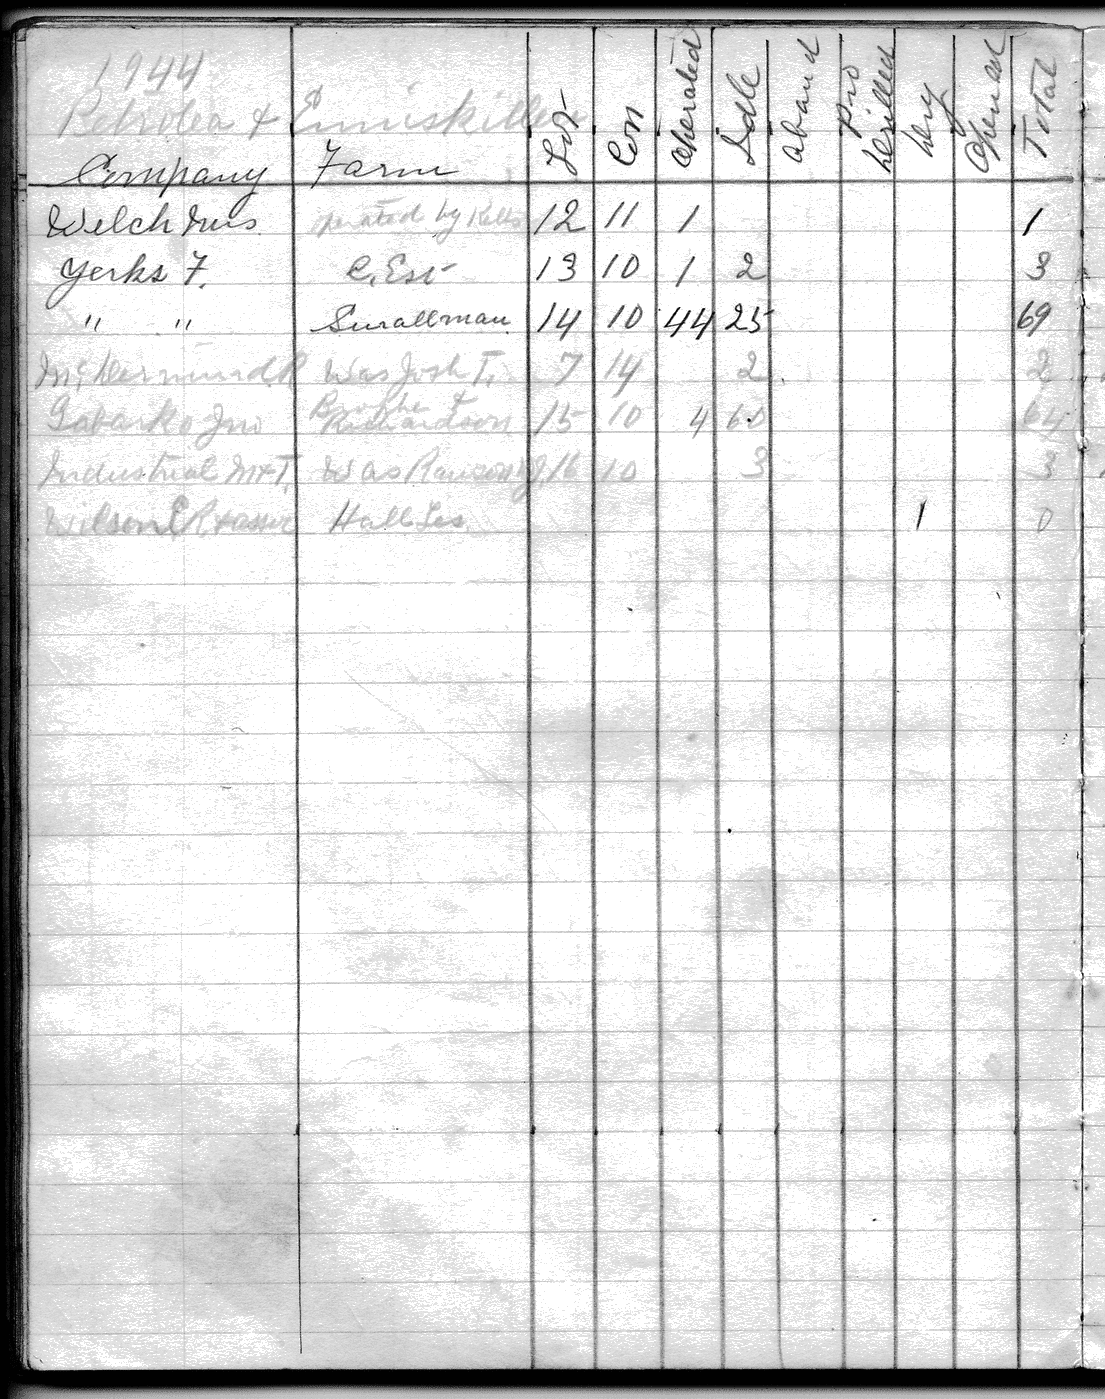 1944
Petrolea & Enniskillen
Company Farm Lot Con Operated Idle Aband Pro Drilled Dry Opened Total
Welch Mrs. operated by Kells 12 11 1 1
Yerks F. C. Est 13 10 1 2 3
" " Smallman 14 10 44 25 69
McDermind R Was Josh T. 7 14 2 2
Gabarko Jno & Richardson 15 10 4 60 64
Industrial M&T. Was 16 10 3 3
Wilson Hall Les. 1 0